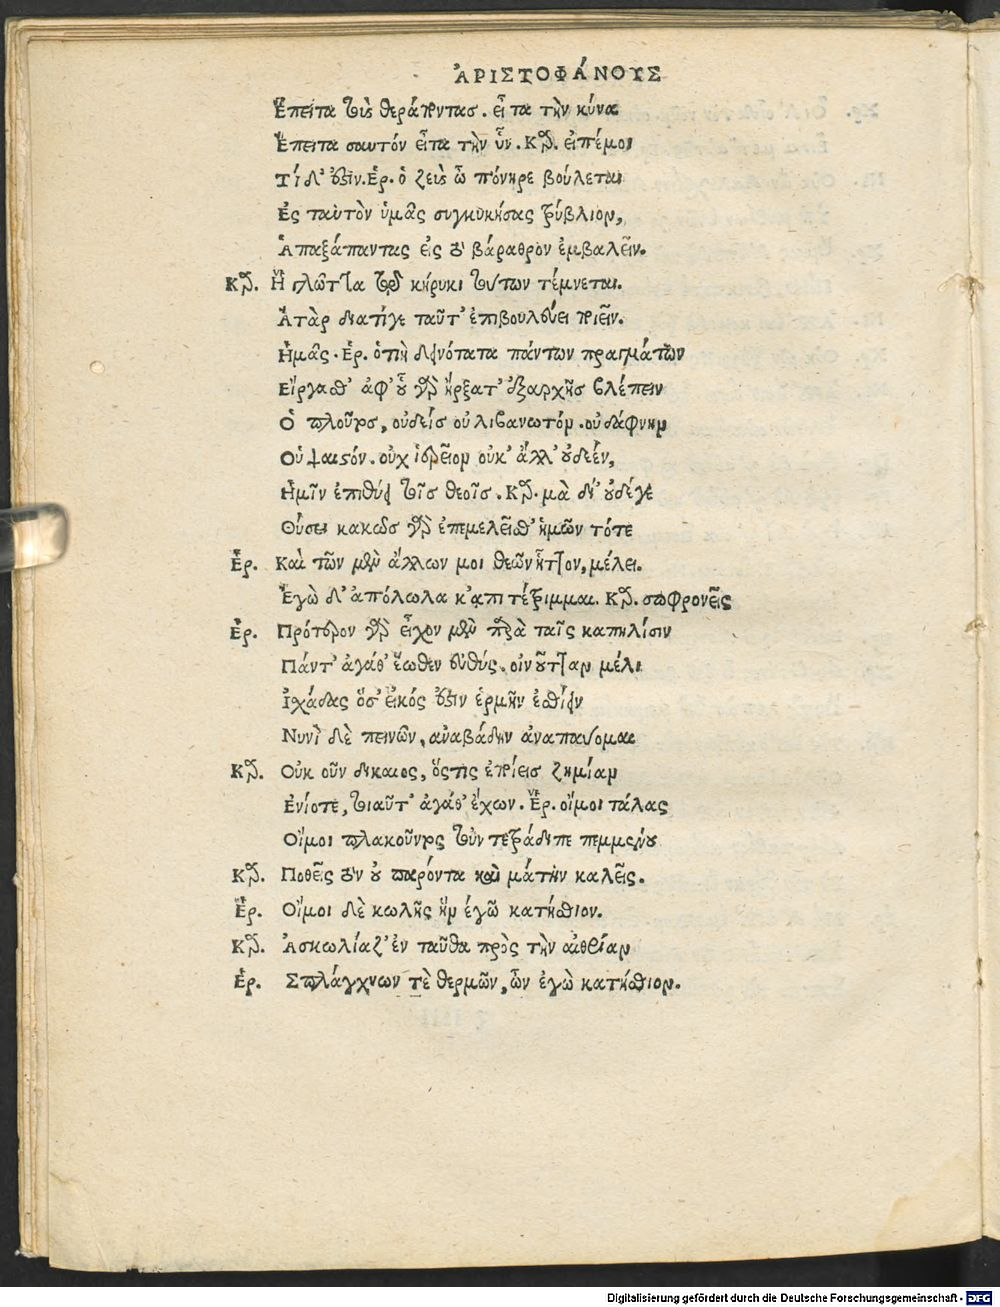 ἈΡΙΣΤΟΦΆΝΟΥΣ
Ἔπειτα τοὺς θεράποντασ. εἶτα τὴν κύνα
Ἔπειτα σαυτόν εἶτα τὴν ὗν. Καρ. εἰπέμοι
Τί δ' ἐστιν. Ἑρ. ὁ ζεὺς ὦ πόνηρε βούλεται
Ἐς ταὐτὸν ὑμᾶς συγκυκήσας τρύβλιον,
Ἁπαξάπαντας εἰς τὸ βάραθρον ἐμβαλεῖν.
Καρ. Ἡ γλῶττα τῷ κήρυκι τούτων τέμνεται.
Ἀτὰρ διατίγε ταῦτ' ἐπιβουλεύει ποιεῖν.
Ἡμᾶς. Ἑρ. ὁτιὴ δεινότατα πάντων πραγμάτων
Εἴργασθ' ἀφ' οὗ γὰρ ἤρξατ' ἐξαρχῆς βλέπειν
Ὁ πλοῦτος, οὐδείσ οὐ λιβανωτόν. οὐ δάφνην
Οὐ ψαιστόν. οὐχ ἱερεῖον οὐκ' ἄλλ' οὐδεέν,
Ἡμῖν ἐπιθύει τοῖσ θεοῖσ. Καρ. μὰ δι' οὐδέγε
Θύσει κακῶσ γὰρ ἐπεμελεῖσθ' ἡμῶν τότε
Ἑρ. Καὶ τῶν μὲν ἄλλων μοι θεῶν ἧττον, μέλει.
Ἐγὼ δ' ἀπόλωλα κ'ἀπιτέτριμμαι. Καρ. σωφρονεῖς
Ἑρ. Πρότερον γὰρ εἶχον μὲν παρὰ ταῖς καπηλίσιν
Πάντ' ἀγάθ' ἕωθεν εὐθύς. οἰνοῦτταν μέλι
Ἰχάδας ὅσ' εἰκός ἐστιν ἑρμῆν ἐσθίειν
Νυνὶ δὲ πεινῶν, ἀναβάδην ἀναπαύομαι
Καρ. Οὐκ οὖν δικαιος, ὅστις ἐποίεισ ζημίαν
Ἐνίοτε, τοιαῦτ' ἀγάθ' ἔχων. Ἑρ. οἴμοι τάλας
Οἴμοι πλακοῦντος τοὐν τετράδιπε πεμμένου
Καρ. Ποθεῖς τὸν οὐ παρόντα καὶ μάτην καλεῖς.
Ἑρ. Οἴμοι δὲ κωλῆς ἣν ἐγὼ κατήσθιον.
Καρ. Ἀσκωλίαζ' ἐν ταῦθα πρὸς τὴν αἰθρίαν
Ἑρ. Σπλάγχνων τὲ θερμῶν, ὧν ἐγὼ κατήσθιον.
Digitalisierung gefördert durch die Deutsche Forschungsgemeinschaft - DFG